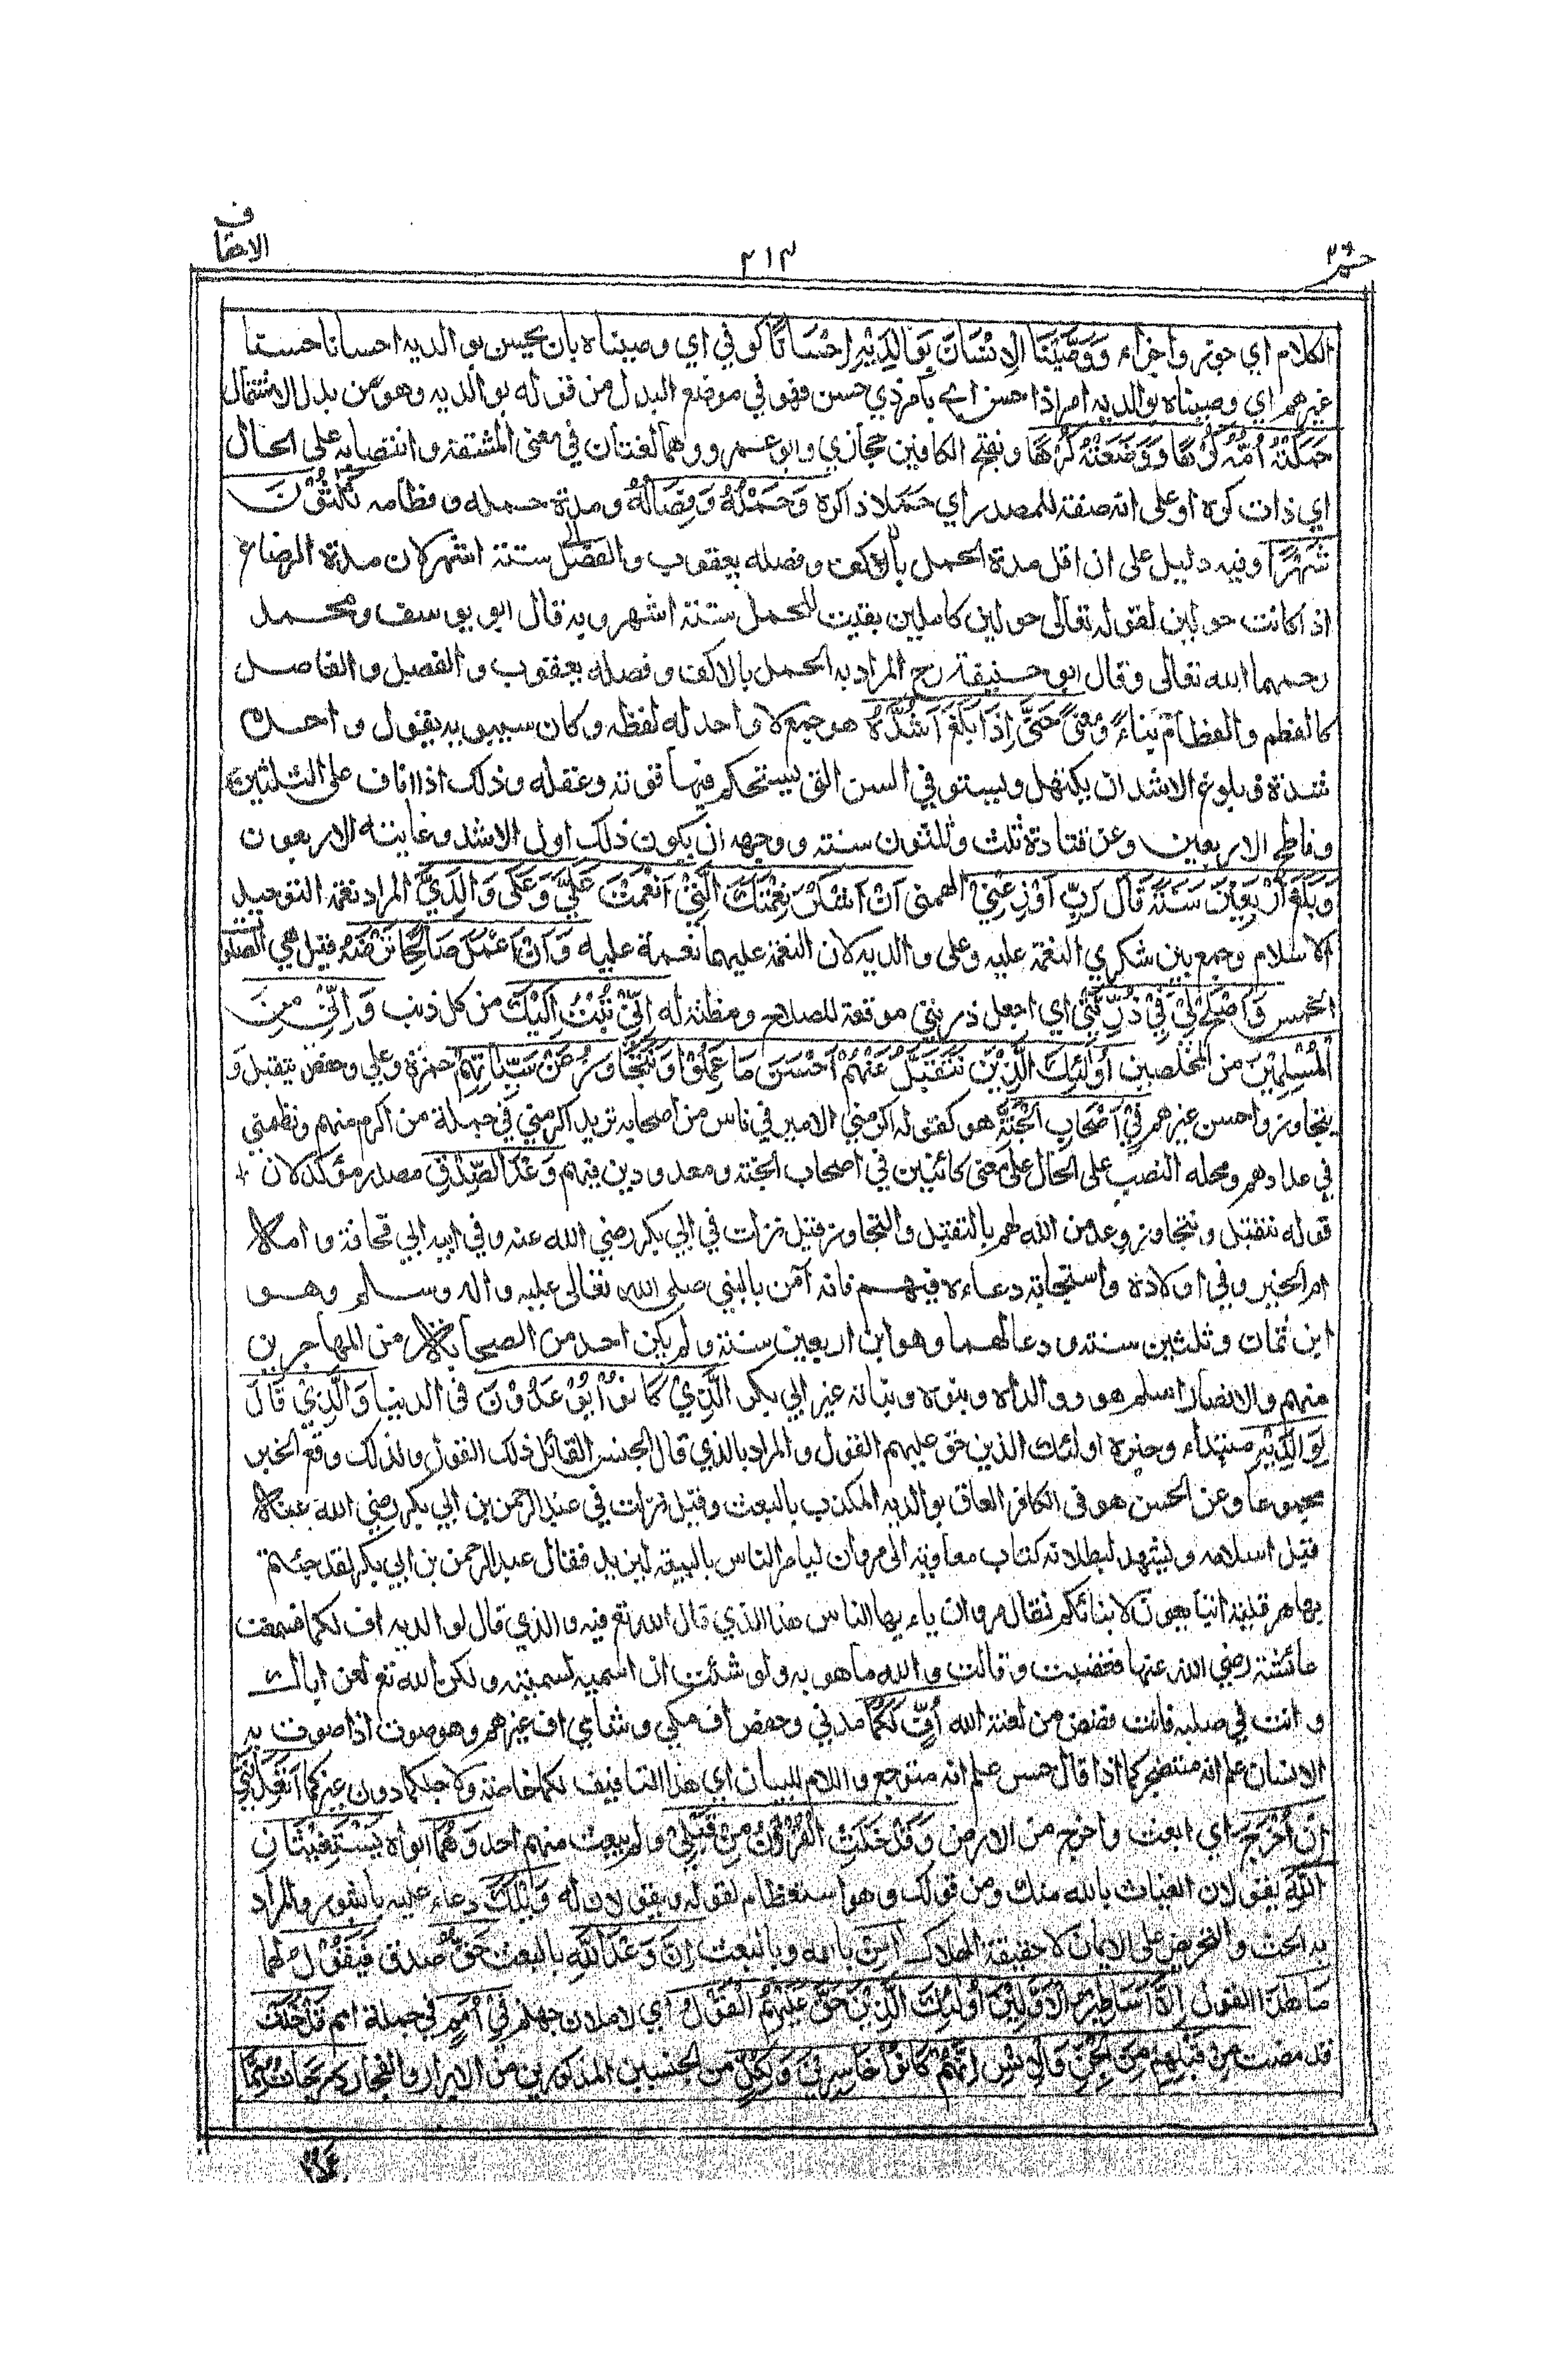 حٰم ٢٦
٢١٣
الاحقاف
الكلام اي جوزوا جزاء وَوَصَّيْنَا الْاِنْسَانَ بِوَالِدَيْهِ اِحْسَانًا كوفي اي وصيناه بان يحسن بوالديه احسانا حسنا
غيرهم اي وصيناه بوالديه امرا ذا حسن اي بامر ذي حسن فهو في موضع البدل من قوله بوالديه وهو من بدل الاشتمال
حَمَلَتْهُ اُمُّهُ كُرْهًا وَوَضَعَتْهُ كُرْهًا وبفتح الكافين حجازي وابو عمرو وهما لغتان في معنى المشقة وانتصابه على الحال
اي ذات كره او على انه صفة للمصدر اي حملا ذا كره وَحَمْلُهُ وَفِصَالُهُ ومدة حمله وفطامه ثَلٰثُوْنَ
شَهْرًا وفيه دليل على ان اقل مدة الحمل ستة اشهر لان مدة الرضاع
اذا كانت حولين لقوله تعالى حولين كاملين بقيت للحمل ستة اشهر وبه قال ابو يوسف ومحمد
رحمهما الله تعالى وقال ابو حنيفة رح المراد به الحمل بالاكف وفصله يعقوب والفصل والفصال
كالفطم والفطام بناءً ومعنىً حَتّٰى اِذَا بَلَغَ اَشُدَّهُ هو جمع لا واحد له لفظه وكان سيبويه يقول واحده
شدة وبلوغ الاشد ان يكتهل ويستوفي السن التي يستحكم فيها قوته وعقله وذلك اذا اناف على الثلثين
وناطح الاربعين وعن قتادة ثلث وثلثون سنة ووجهه ان يكون ذلك اول الاشد وغايته الاربعون
وَبَلَغَ اَرْبَعِيْنَ سَنَةً قَالَ رَبِّ اَوْزِعْنِيْ الهمني اَنْ اَشْكُرَ نِعْمَتَكَ الَّتِيْ اَنْعَمْتَ عَلَيَّ وَعَلٰى وَالِدَيَّ المراد نعمة التوحيد
الاسلام وجمع بين شكري النعمة عليه وعلى والديه لان النعمة عليهما نعمة عليه وَاَنْ اَعْمَلَ صَالِحًا تَرْضٰهُ قيل هي الصلوات
الخمس وَاَصْلِحْ لِيْ فِيْ ذُرِّيَّتِيْ اي اجعل ذريتي موقعة للصلاح ومظنة له اِنِّيْ تُبْتُ اِلَيْكَ من كل ذنب وَاِنِّيْ مِنَ
الْمُسْلِمِيْنَ من المخلصين اُولٰئِكَ الَّذِيْنَ نَتَقَبَّلُ عَنْهُمْ اَحْسَنَ مَا عَمِلُوْا وَنَتَجَاوَزُ عَنْ سَيِّاٰتِهِمْ حمزة وعلي وحفص يتقبل و
يتجاوز واحسن غيرهم فِيْ اَصْحَابِ الْجَنَّةِ هو كقوله اكرمني الامير في ناس من اصحابه تريد اكرمني في جملة من اكرم منهم ونظمني
في عدادهم ومحله النصب على الحال على معنى كائنين في اصحاب الجنة ومعدودين فيهم وَعْدَ الصِّدْقِ مصدر مؤكد لان
قوله نتقبل ونتجاوز وعد من الله لهم بالتقبل والتجاوز قيل نزلت في ابي بكر رضي الله عنه وفي ابيه ابي قحافة وامه
ام الخير وفي اولاده واستجابة دعاءه فيهم فانه آمن بالنبي صلى الله تعالى عليه واله وسلم وهو
ابن ثمان وثلثين سنة ودعا لهما وهو ابن اربعين سنة ولم يكن احد من الصحابة من المهاجرين
منهم والانصار اسلم هو ووالداه وبنوه وبناته غير ابي بكر الَّذِيْ كَانُوْا يُوْعَدُوْنَ في الدنيا وَالَّذِيْ قَالَ
لِوَالِدَيْهِ مبتداء وخبره اولئك الذين حق عليهم القول والمراد بالذي قال الجنس القائل ذلك القول ولذلك وقع الخبر
مجموعا وعن الحسن هو في الكافر العاق بوالديه المكذب بالبعث وقيل نزلت في عبد الرحمن بن ابي بكر رضي الله عنه
قبل اسلامه ويشهد لبطلانه كتاب معاوية الى مروان ليامر الناس بالبيعة ليزيد فقال عبد الرحمن بن ابي بكر لقد جئتم
بها هرقلية اتبايعون لابنائكم فقال مروان ياءيها الناس هذا الذي قال الله تع فيه والذي قال لوالديه اف لكما فسمعت
عائشة رضي الله عنها فغضبت وقالت والله ما هو به ولو شئت ان اسميه لسميته ولكن الله تع لعن اباك
وانت في صلبه فانت فضض من لعنة الله اُفٍّ لَّكُمَا مدني وحفص اف مكي وشامي اف غيرهم وهو صوت اذا صوت به
الانسان علم انه متضجر كما اذا قال حس علم انه متوجع واللام للبيان اي هذا التافيف لكما خاصة ولاجلكما دون غيركما اَتَعِدٰنِنِيْ
اَنْ اُخْرَجَ اي ابعث واخرج من الارض وَقَدْ خَلَتِ الْقُرُوْنُ مِنْ قَبْلِيْ ولم يبعث منهم احد وَهُمَا ابواه يَسْتَغِيْثَانِ
اللّٰهَ يقولان الغياث بالله منك ومن قولك وهو استعظام لقوله ويقولان له وَيْلَكَ دعاء عليه بالثبور والمراد
به الحث والتحريض على الايمان لا حقيقة الهلاك اٰمِنْ بالله وبالبعث اِنَّ وَعْدَ اللّٰهِ بالبعث حَقٌّ صدق فَيَقُوْلُ لهما
مَا هٰذَا القول اِلَّا اَسَاطِيْرُ الْاَوَّلِيْنَ اُولٰئِكَ الَّذِيْنَ حَقَّ عَلَيْهِمُ الْقَوْلُ اي لاملان جهنم فِيْ اُمَمٍ في جملة امم قَدْ خَلَتْ
قد مضت مِنْ قَبْلِهِمْ مِنَ الْجِنِّ وَالْاِنْسِ اِنَّهُمْ كَانُوْا خَاسِرِيْنَ وَلِكُلٍّ من الجنسين المذكورين من الابرار والفجار دَرَجَاتٌ مِّمَّا